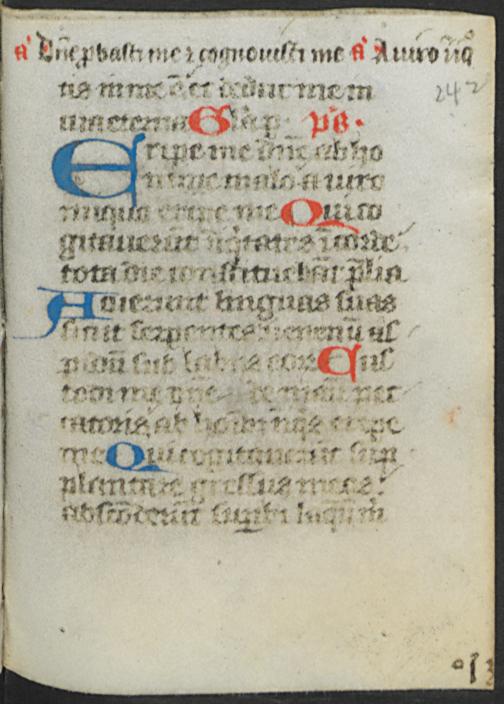 a Dñe pbasti me ⁊ cognovisti me a A viro iniq
tis in me ē et deduc me in
via eterna Glā p ps.
Eripe me dñe ab ho
mine malo a viro
iniquo eripe me Qui co
gitaverūt iniqtates ī corde
tota die constituebāt plia
Acuerunt linguas suas
sicut serpentes venenū as
pidū sub labiis eorū Cus
todi me dñe de manu pec
catoris ab hominibus iniqs eripe
me Qui cogitaverūt sup
plantare gressus meos
absconderūt supbi laqueū m
242